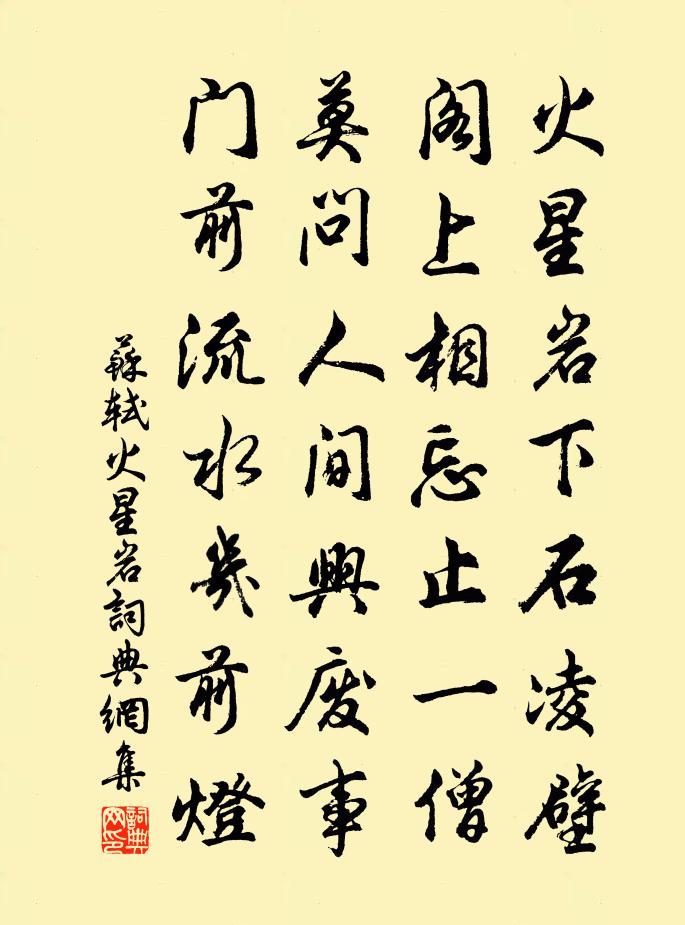 火星岩下石凌壁
阁上相忘止一僧
莫问人间興废事
门前流水幾前燈
蘇轼火星岩詞典網集
詞典
网印